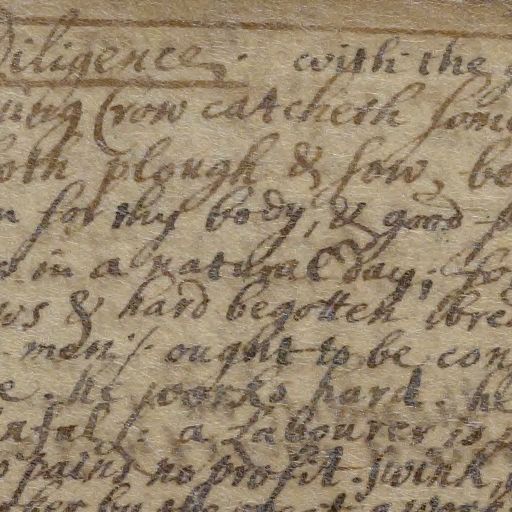 Diligence. with the
ing Crow catcheth som
oth plough & sow, be
for thy body, & good
in a natural day, fo
ws & hard begotten bred
men/. ought to be con
e. he works hard. he
nful/: a Labourer is
pains no profit. swink
by the